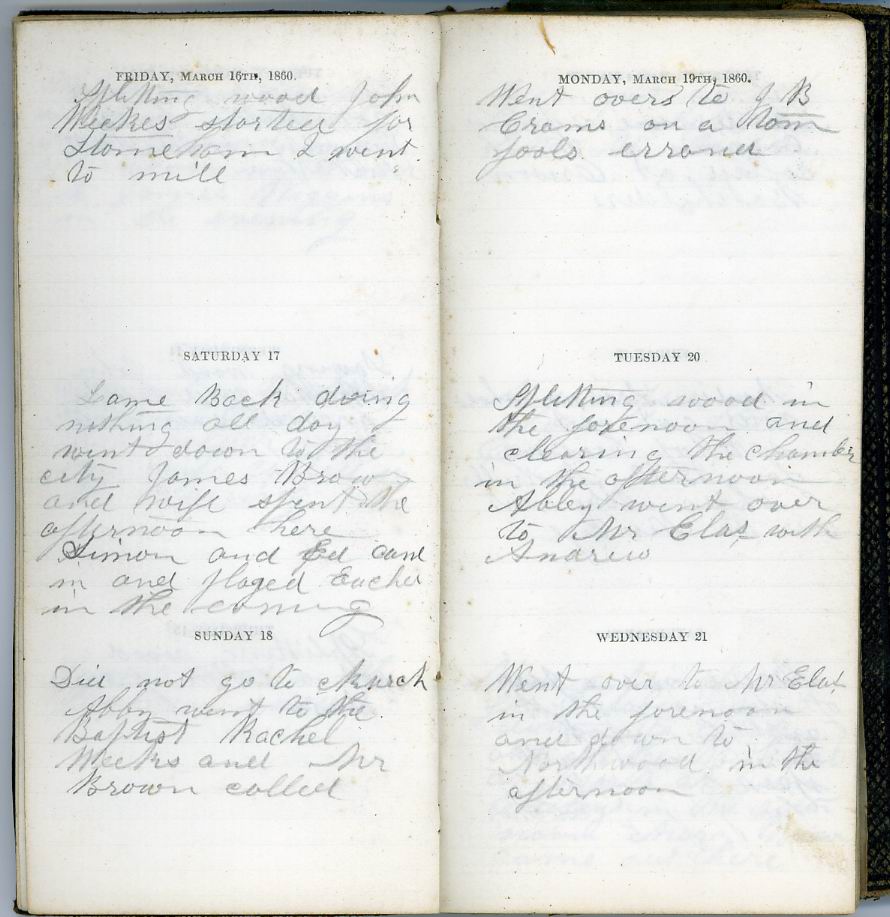 FRIDAY, MARCH 16TH, 1860.
Splitting wood John
Weekes started for
Stoneham I went
to mill
SATURDAY 17
Lame Back doing
nothing all day
went down to the
city James Brown
and wife spent the
afternoon here
Simon and Ed came
in and played Eucher
in the evening
SUNDAY 18
Did not go to church
Abby went to the
Baptist Rachel
Weeks and Mr
Brown called
MONDAY, MARCH 19TH, 1860.
Went overs to J B
Crams on a tom
fools errand
TUESDAY 20
Splitting wood in
the forenoon and
clearing the chamber
in the afternoon
Abbey went over
to Mr with
Andrew
WEDNESDAY 21
Went over to Mr
in the forenoon
and down to
Northwood in the
afternoon